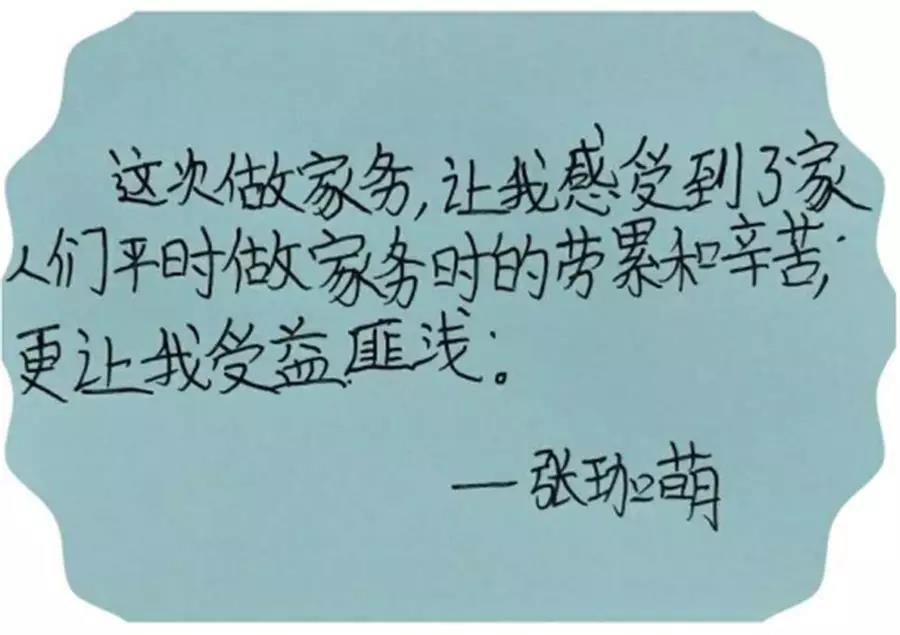 这次做家务,让我感受到了家
人们平时做家务时的劳累和辛苦;
更让我受益匪浅。
—张珈萌